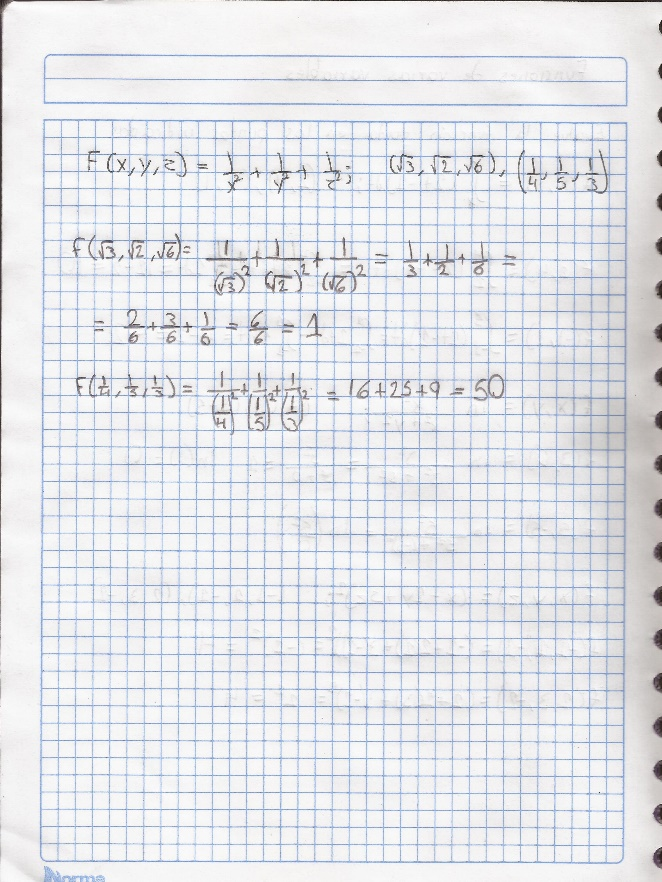 F(x,y,z) = 1/x² + 1/y² + 1/z²; (√3, √2, √6), (1/4, 1/5, 1/3)
f(√3, √2, √6) = 1/(√3)² + 1/(√2)² + 1/(√6)² = 1/3 + 1/2 + 1/6 =
= 2/6 + 3/6 + 1/6 = 6/6 = 1
F(1/4, 1/5, 1/3) = 1/(1/4)² + 1/(1/5)² + 1/(1/3)² = 16 + 25 + 9 = 50
Norma